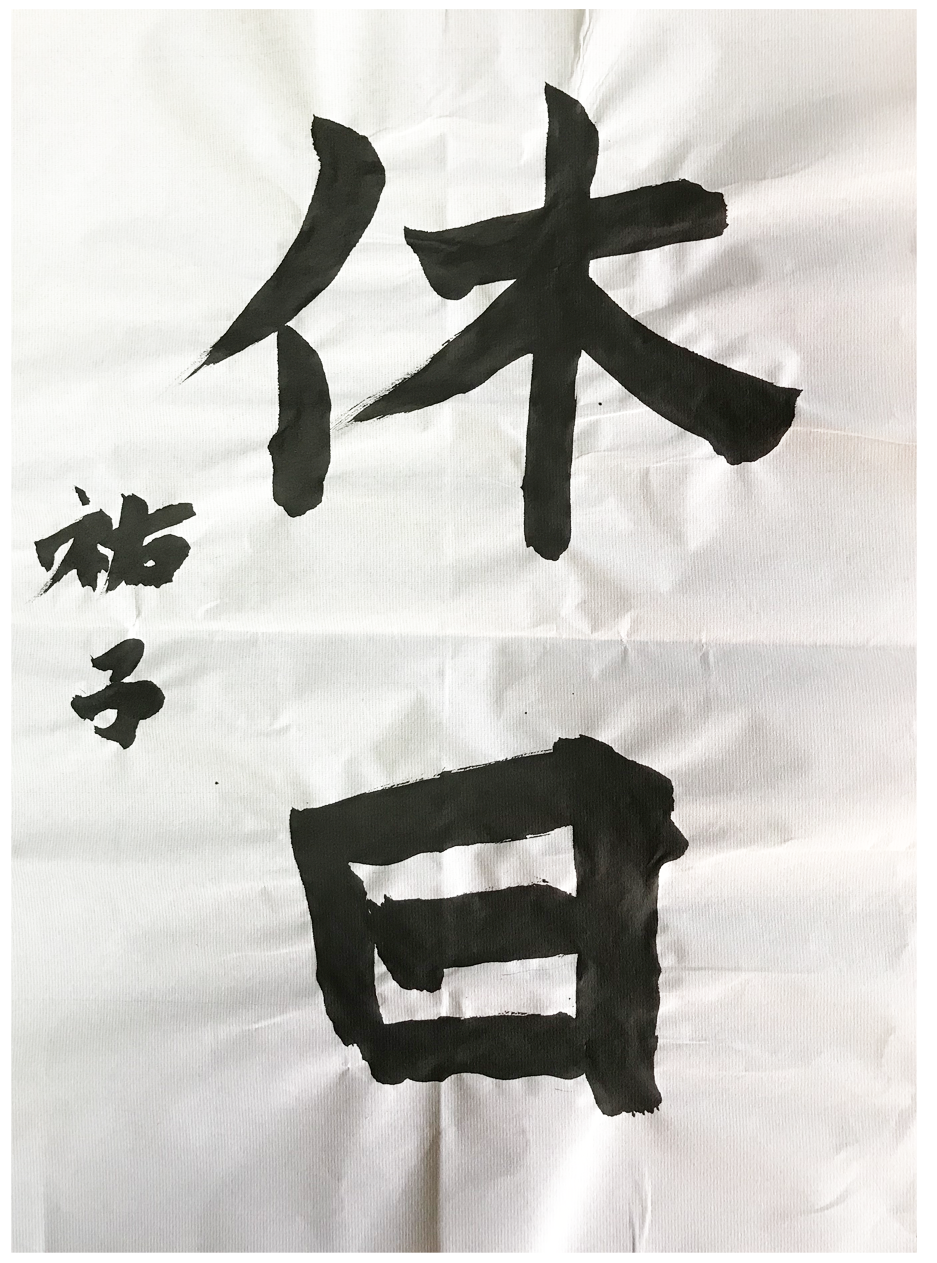 休日
祐子